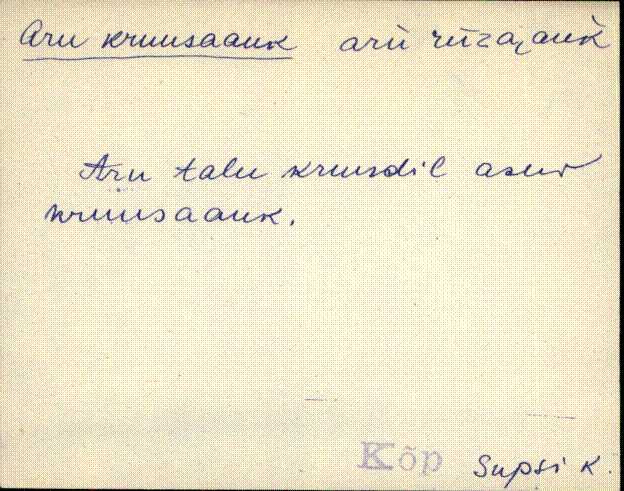 Aru kruusaauk arù rüza͔aùk
Aru talu krundil asuv
kruusaauk.
Kõp Supsi k.